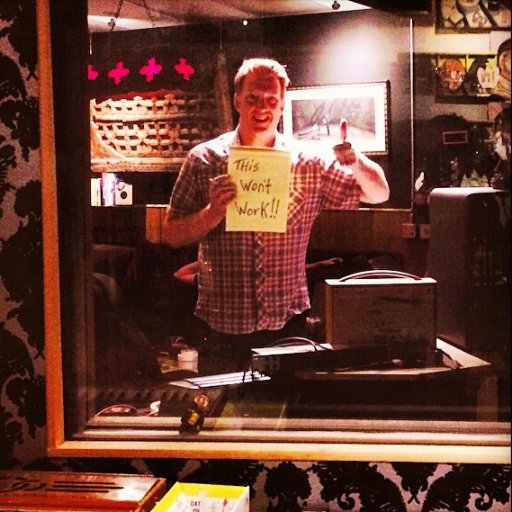 THis
Won't
Work!!
DAT